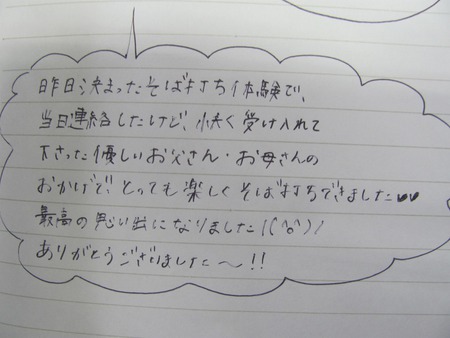 昨日決まったそば打ち体験で、
当日連絡したけど、快く受け入れて
下さった優しいお父さん・お母さんの
おかげでとっても楽しくそば打ちできました♥♥
最高の思い出になりました!(^o^)/
ありがとうございました〜!!